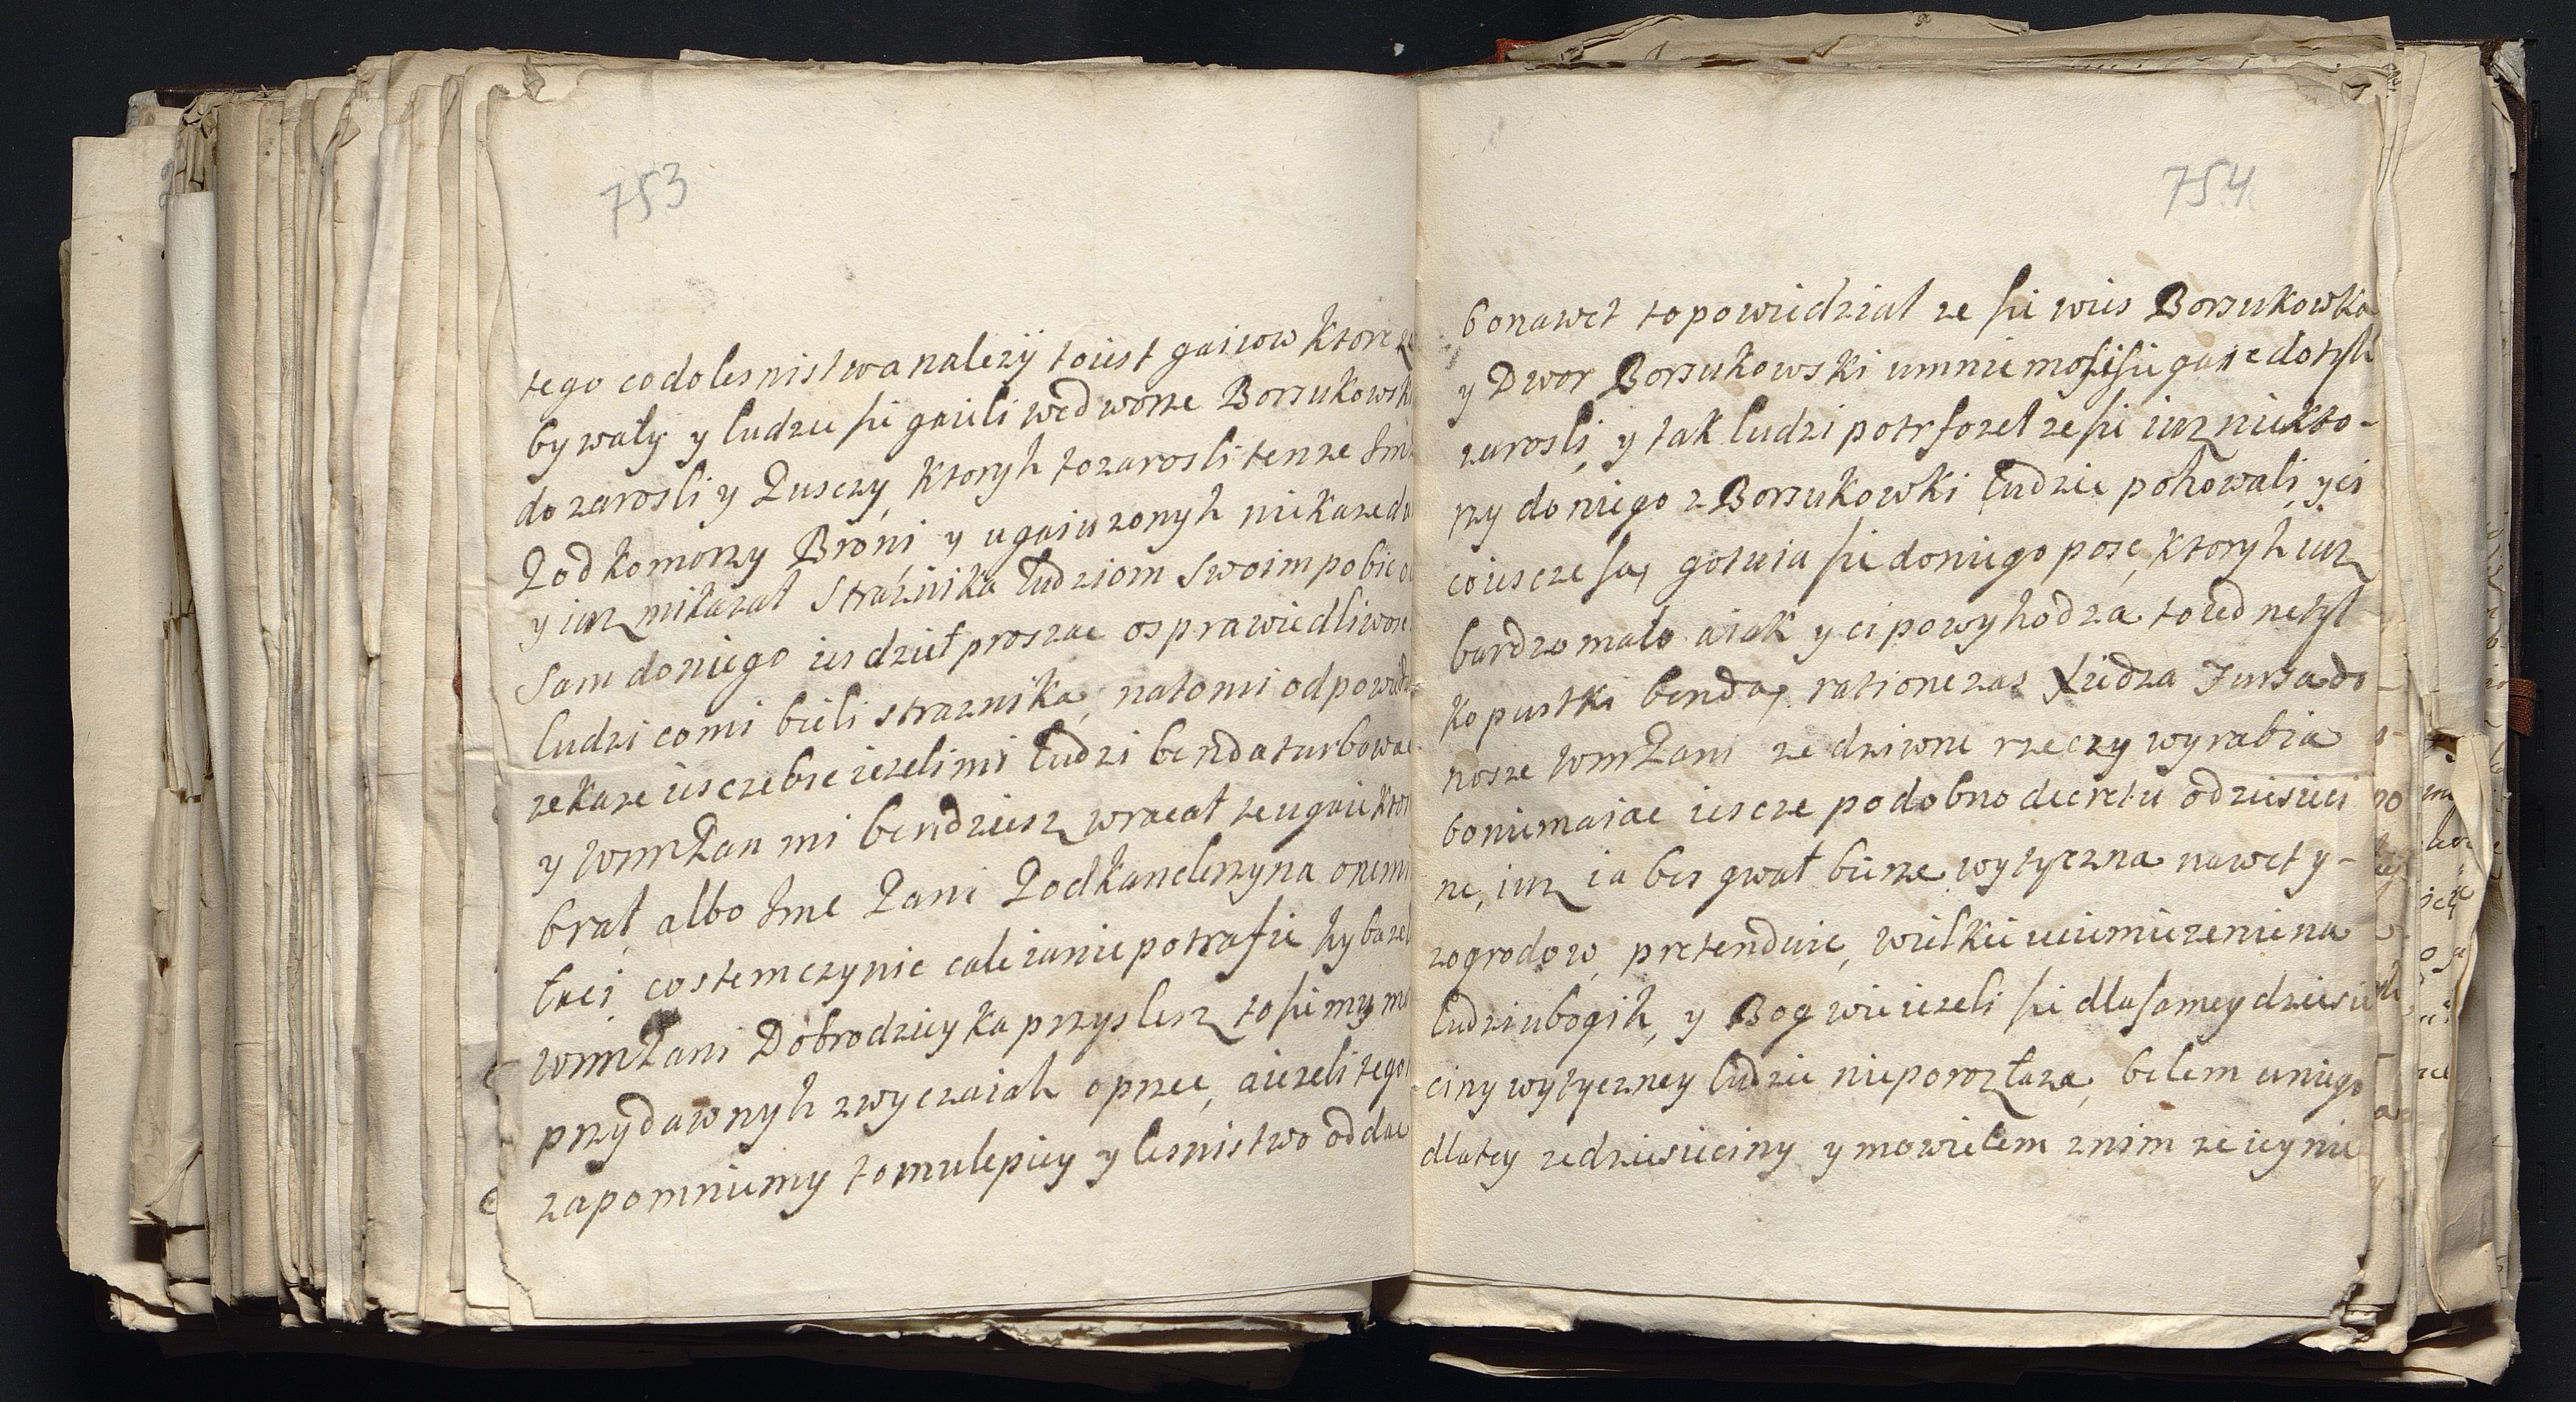 753
tego codolesnistwa nalezÿ toiest gaiow ktore
bywały y ludzie sie gaieli wedworze Borsukowsk
do zarosli y Pusczy, ktoryh tozarosli tenze Jm
Podkomorzy Broni y ugaiuzonyh niekazedw
y iuz mikazał Strażnika ludziom swoim pobic
Sam doniego iezdzieł proszac osprawiedliwosc
ludzi comi bieli straznika, natomi odpowied
zekaze iesczebic iezelimi ludzi benda turbowac
y WmmPan mi bendziesz wracał zeugaie ktor
brał, albo Jme Pani Podkanclerzyna onemi
traci, costemczynic cale ianie potrafie hybaze
WmmPani Dobrodzieyka przyslesz tosiemy m
przydawnyh zwyczaiah oprzec, aiezeli tego
zapomniemy tomulepiey y lesnistwo oddac
754
bonawet topowiedział ze sie wies Borsukowka
y Dwor Borsukowski umnie mosisie gaic dotyh
zarosli, y tak ludzi potrsozeł ze sie iuz niekto-
rzy doniego z Borsukowki ludzie pohowali, y ci
coiescze są, gotuia sie doniego posc, ktoryh iuz
bardzo mało aiak y ci powyhodza to iednetyl
ko pustki bendą, ratione zas Xiedza Jurza do
nosze WmPani ze dziwne rzeczy wyrabia
boniemaiac iescze podobno decretu odziesieci
ne, iuz ia bes gwał bierze wytyczna nawet y-
zogrodow, pretenduie, wielkie uciemiezenie na
ludzi ubogih, y Bog wie iezeli sie dla samey dziesie
ciny wytyczney ludzie nieporozłazą, belem uniego
dlatey zedziesieciny y mowiełem znim ze iey nie